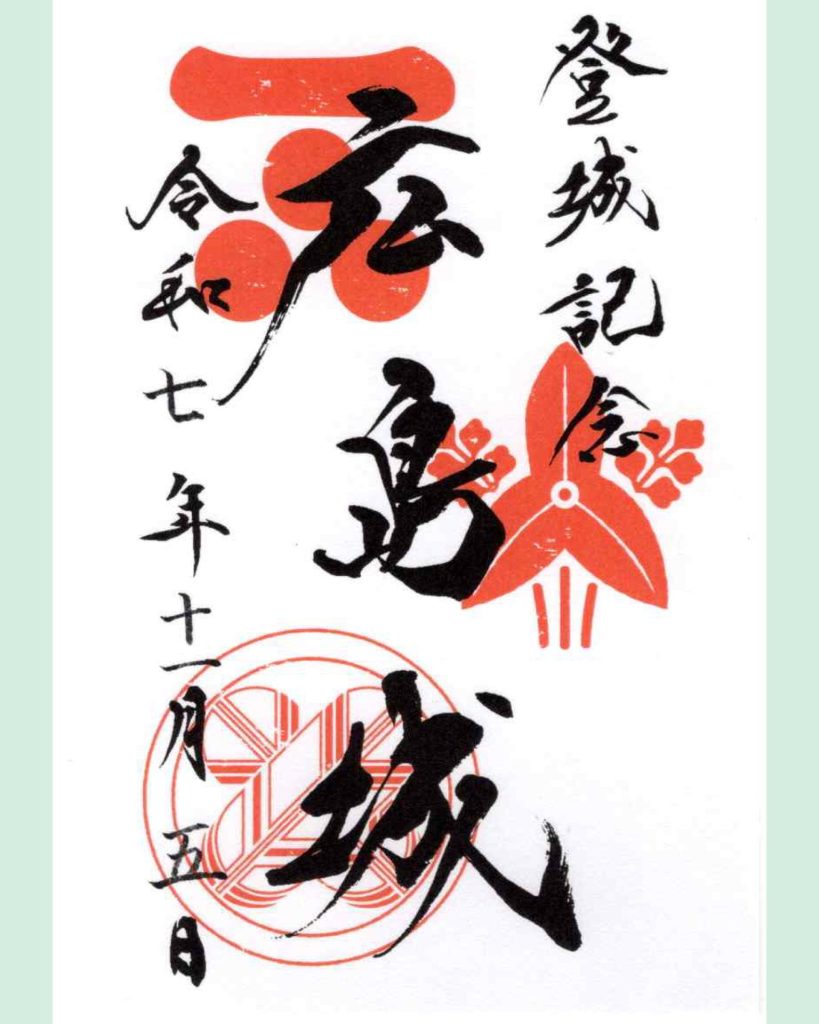 登城記念
広島城
令和七年十一月五日